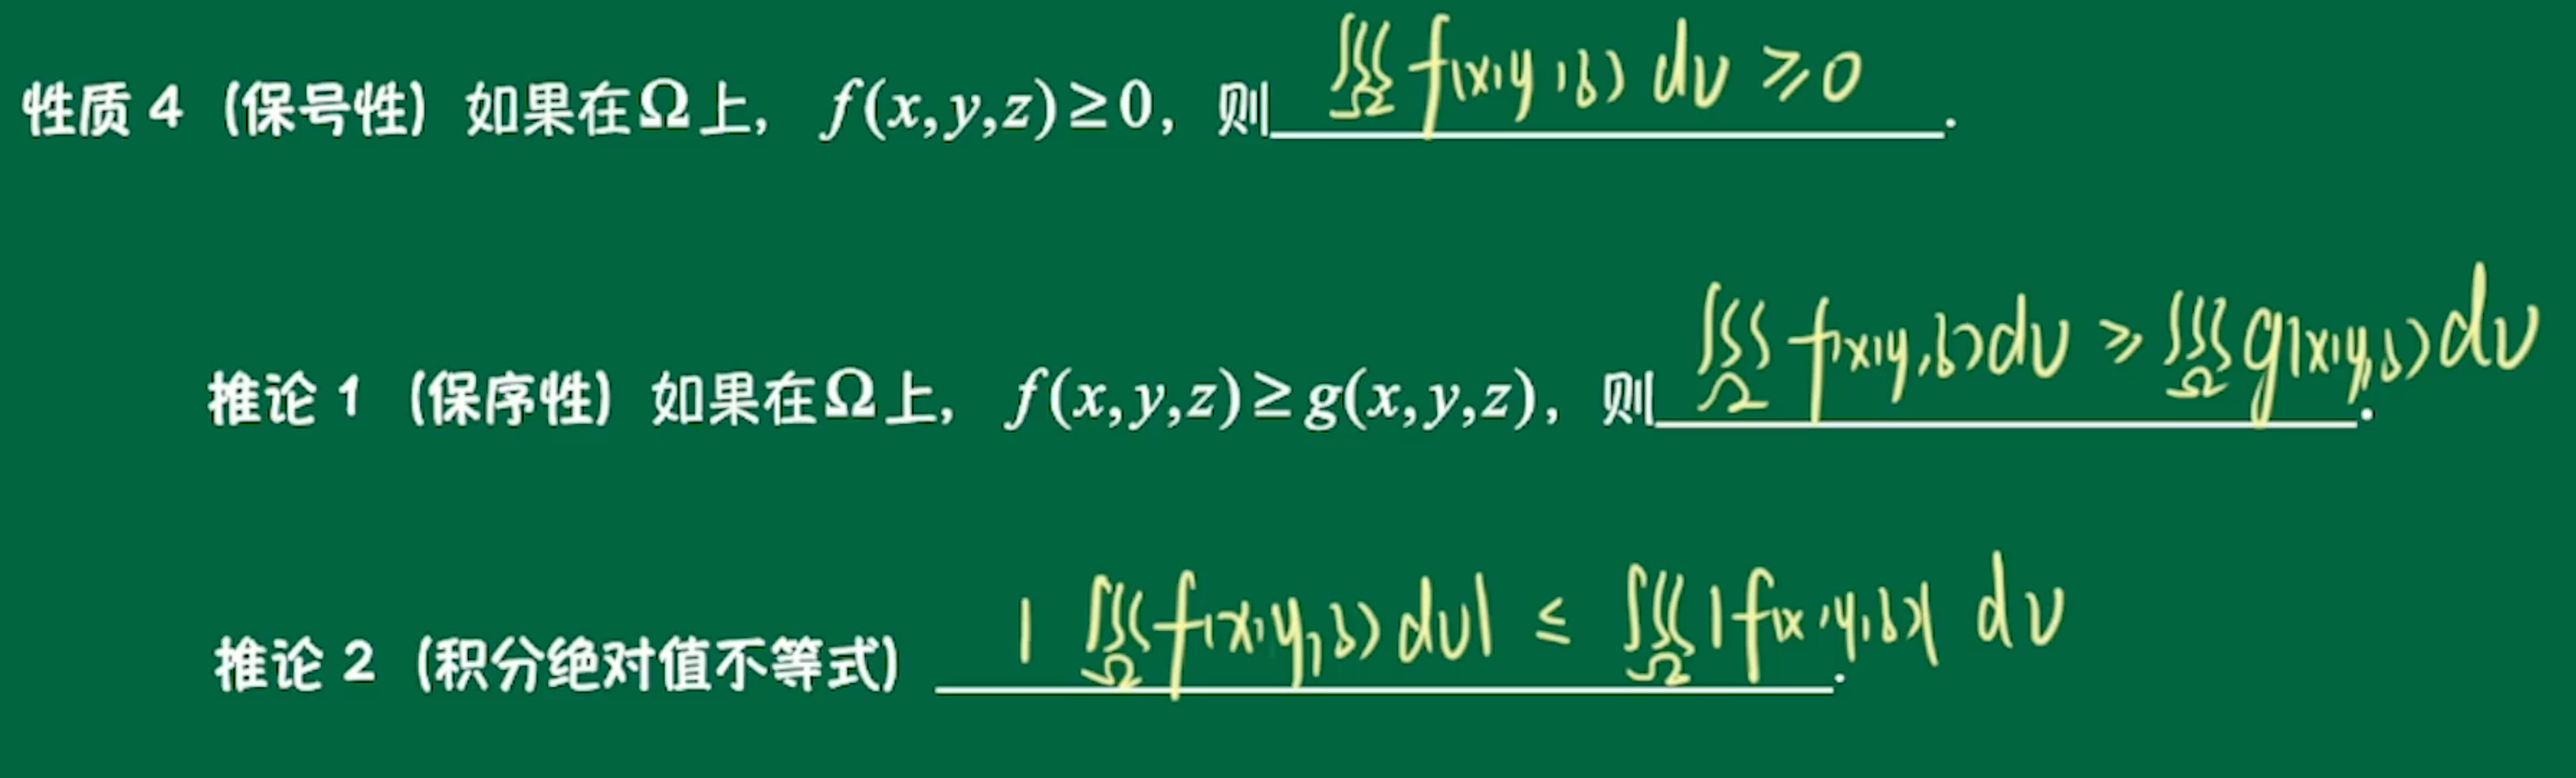 性质 4 (保号性) 如果在Ω上, f(x,y,z)≥0, 则 ∭_Ω f(x,y,z) dv ≥0.
推论 1 (保序性) 如果在Ω上, f(x,y,z)≥g(x,y,z), 则 ∭_Ω f(x,y,z)dv ≥ ∭_Ω g(x,y,z)dv.
推论 2 (积分绝对值不等式) |∭_Ω f(x,y,z)dv| ≤ ∭_Ω |f(x,y,z)| dv.